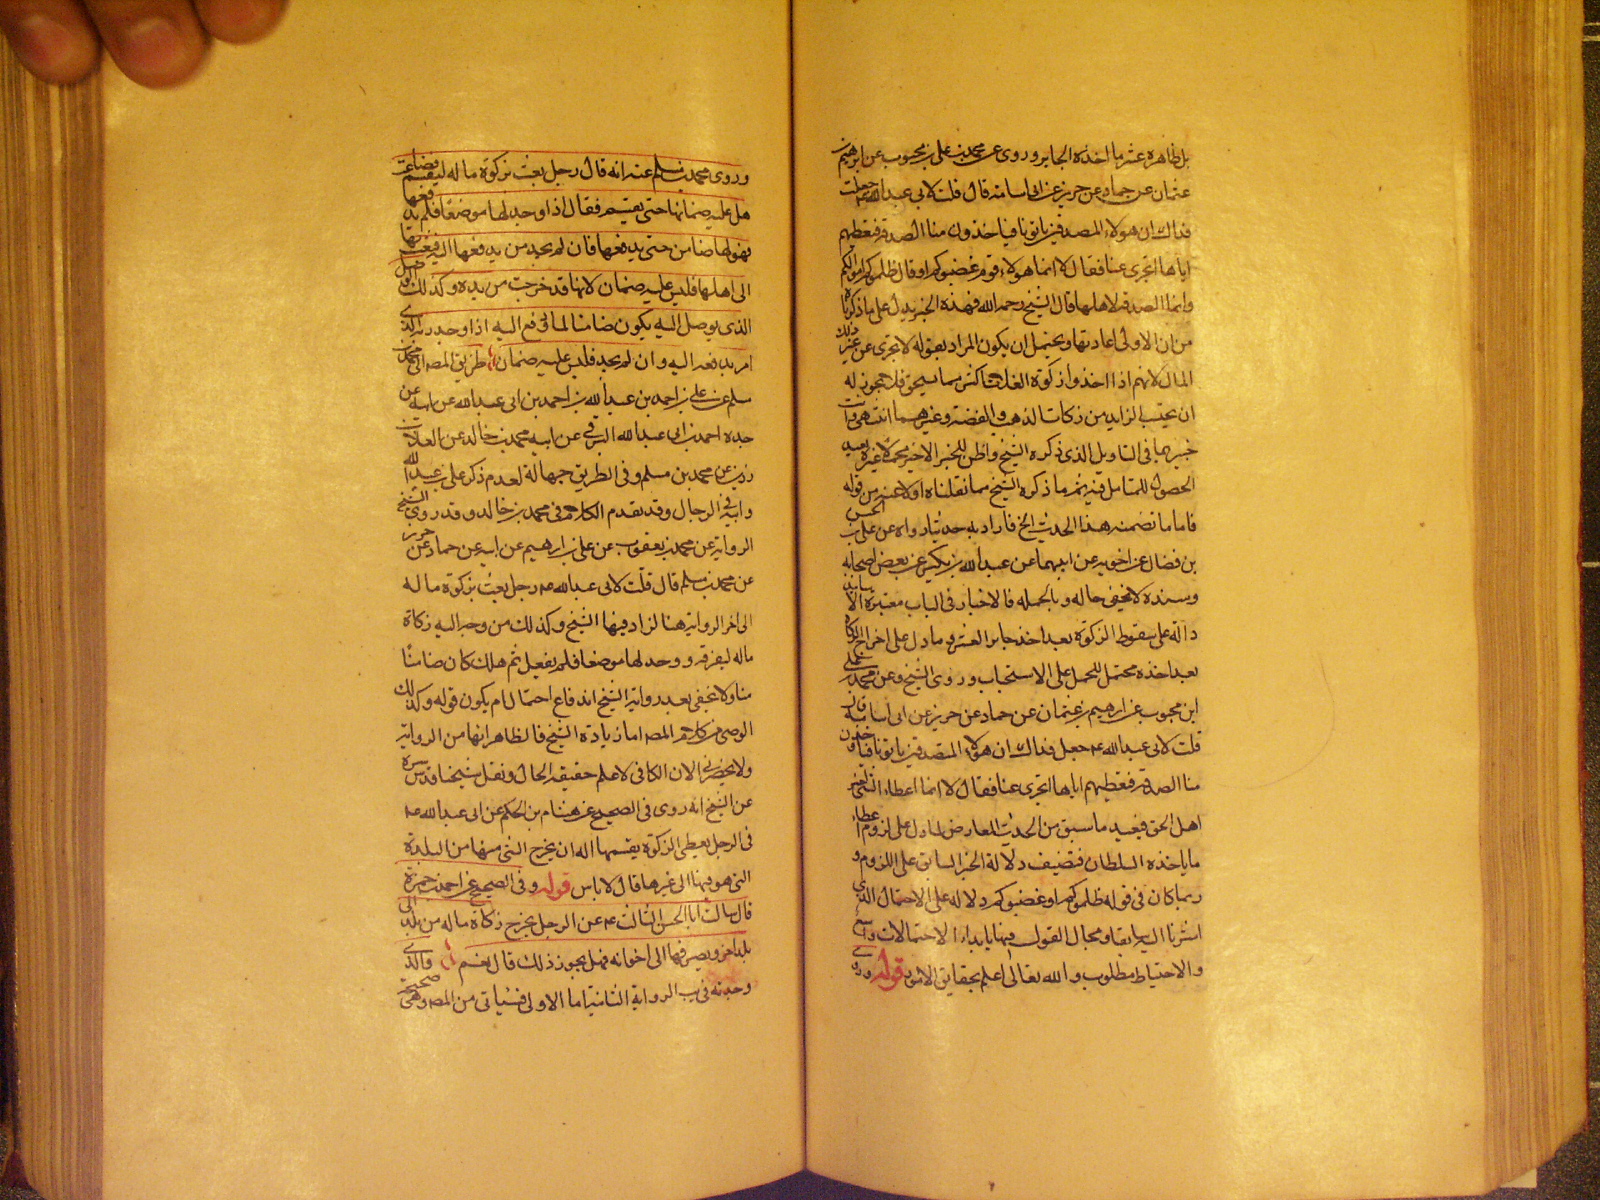 بل ظاهره عشر ما اخذه الجابر وروى عن محمد بن علي بن محبوب عن ابرهيم بن
عثمان عن حماد عن حريز عن ابي اسامة قال قلت لابي عبد الله ع جعلت
فداك ان هولاء المصدقين ياتونا فياخذون منا الصدقة فنعطيهم
اياها اتجزى عنا فقال لا انما هولاء قوم غصبوكم او قال ظلموكم اموالكم
وانما الصدقة لاهلها قال الشيخ رحمه الله فهذه الخبر يدل على ما ذكرناه
من ان الاولى اعادتها ويحتمل ان يكون المراد بقوله لا تجزى عن غير ذلك
المال لانهم اذا اخذوا زكوة الغلات اكثر مما يستحق فلا يجوز له
ان يحتسب الزايد من زكات الذهب والفضة وغيرهما انتهى وانت
خبير بما في التاويل الذي ذكره الشيخ واظن للخبر الاخير محملا غيره بعيد
الحصول للمتامل فيه ثم ما ذكره الشيخ مما نقلناه اولا عنه من قوله
فاما ما تضمنه هذا الحديث الخ فاراد به حديثا رواه عن علي بن الحسن
بن فضال عن اخويه عن ابيهما عن عبد الله بن بكير عن بعض اصحابه
وسنده لا يخفى حاله وبالجملة فالاخبار في الباب معتبرة الاسانيد
دالة على سقوط الزكوة بعد اخذ جابر العشر وما دل على اخراج الزكاة
بعد اخذه محتمل للحمل على الاستحباب وروى الشيخ وعن محمد بن علي
ابن محبوب عن ابرهيم بن عثمان عن حماد عن حريز عن ابي اسامة قال
قلت لابي عبد الله ع جعل فداك ان هولاء المصدقين ياتونا فياخذون
منا الصدقة فنعطيهم اياها اتجزى عنا فقال لا انما اعطاء الشيء لغير
اهل الحق فيفيد ما سبق من الحديث المعارض لما دل على لزوم اعطاء
ما ياخذه السلطان فتضيف دلالة الخبر السابق على اللزوم و
ربما كان في قوله ظلموكم او غصبوكم دلالة على الاحتمال الذي
اشرنا اليه سابقا ومجال القول فيها بابداء الاحتمالات واسع
والاحتياط مطلوب والله تعالى اعلم بحقايق الامور قوله وروى
وروى محمد بن مسلم عنه انه قال رجل بعث بزكوة ماله ليقسم فضاعت
هل عليه ضمانها حتى يقسم فقال اذا وجد لها موضعا فلم يدفعها
فهو لها ضامن حتى يدفعها فان لم يجد من يدفعها اليه فبعث بها
الى اهلها فليس عليه ضمان لانها قد خرجت من يده وكذلك الوصي
الذي يوصى اليه يكون ضامنا لما دفع اليه اذا وجد ربه الذي
امر بدفعه اليه وان لم يجد فليس عليه ضمان طريق المصه الى محمد بن
مسلم عن علي بن احمد بن عبد الله بن احمد بن ابي عبد الله عن ابيه عن
جده احمد بن ابي عبد الله البرقي عن ابيه محمد بن خالد عن العلا بن
رزين عن محمد بن مسلم وفي الطريق جهالة لعدم ذكر علي بن عبد الله
وابيه في الرجال وقد تقدم الكلام في محمد بن خالد وقد روى الشيخ
الرواية عن محمد بن يعقوب عن علي بن ابرهيم عن ابيه عن حماد عن حريز
عن محمد بن مسلم قال قلت لابي عبد الله ع رجل بعث بزكوة ماله
الى اخر الرواية هنا لزاد فيها الشيخ وكذلك من وجه اليه زكاة
ماله ليفرقه ووجد لها موضعا فلم يفعل ثم هلك كان ضامنا
منا ولا يخفى بعد رواية الشيخ اندفاع احتمال ام يكون قوله وكذلك
الوصي من كلام المصه اما زيادة الشيخ فالظاهر انها من الرواية
ولا يحضرني الان الكافي لاعلم حقيقة الحال ونقل شيخنا قدس سره
عن الشيخ انه روى في الصحيح عن هشام بن الحكم عن ابي عبد الله ع
في الرجل يعطى الزكوة يقسمها اله ان يخرج الشيء منها من البلدة
التي هو فيها الى غيرها قال لا باس قوله وفي الصحيح عن احمد بن حمزة
قال سالت ابا الحسن الثالث ع عن الرجل يخرج زكاة ماله من بلد الى
بلد اخر ويصرفها الى اخوانه فهل يجوز ذلك قال نعم فالذي
وجدته في يب الرواية الثانية اما الاولى فسياتي من المصه وهي صحيحة